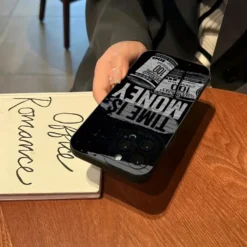 TIME IS
MONEY
Office
Romance